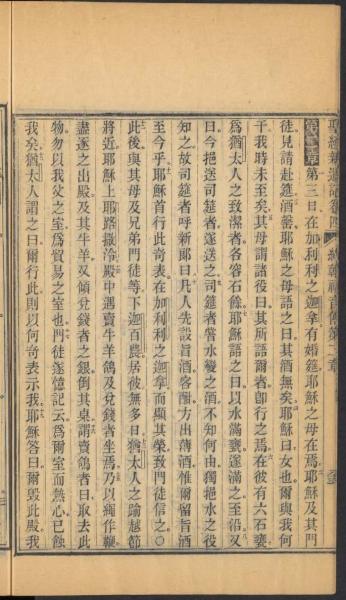 聖經新遺詔卷四 約翰福音傳第二章
第二章 第三日在加利利之迦拿有婚筵耶穌之母在焉耶穌及其門
徒見請赴筵酒罄耶穌之母語之曰其酒無矣耶穌曰女也爾與我何
干我時未至矣其母謂諸役曰其所語爾者卽行之焉在彼有六石甕
爲猶太人之致潔者各容石餘耶穌語之曰以水滿甕遂滿之至沿又
曰今挹送司筵者遂送之司筵者嘗水變之酒不知何由獨挹水之役
知之故司筵者呼新郎曰凡人先設旨酒客酣方出薄酒惟爾留旨酒
至今乎耶穌首行此奇表在加利利之迦拿而顯其榮致門徒信之〇
此後與其母及兄弟門徒等下迦百農居彼無多日猶太人之踰越節
將近耶穌上耶路撒冷殿中遇賣牛羊鴿及兌錢者坐焉乃以繩作鞭
盡逐之出殿及其牛羊又傾兌錢者之銀倒其桌謂賣鴿者曰取去此
物勿以我父之室爲貿易之室也門徒遂憶記云爲爾室而熱心已蝕
我矣猶太人謂之曰爾行此則以何奇表示我耶穌答曰爾毀此殿我